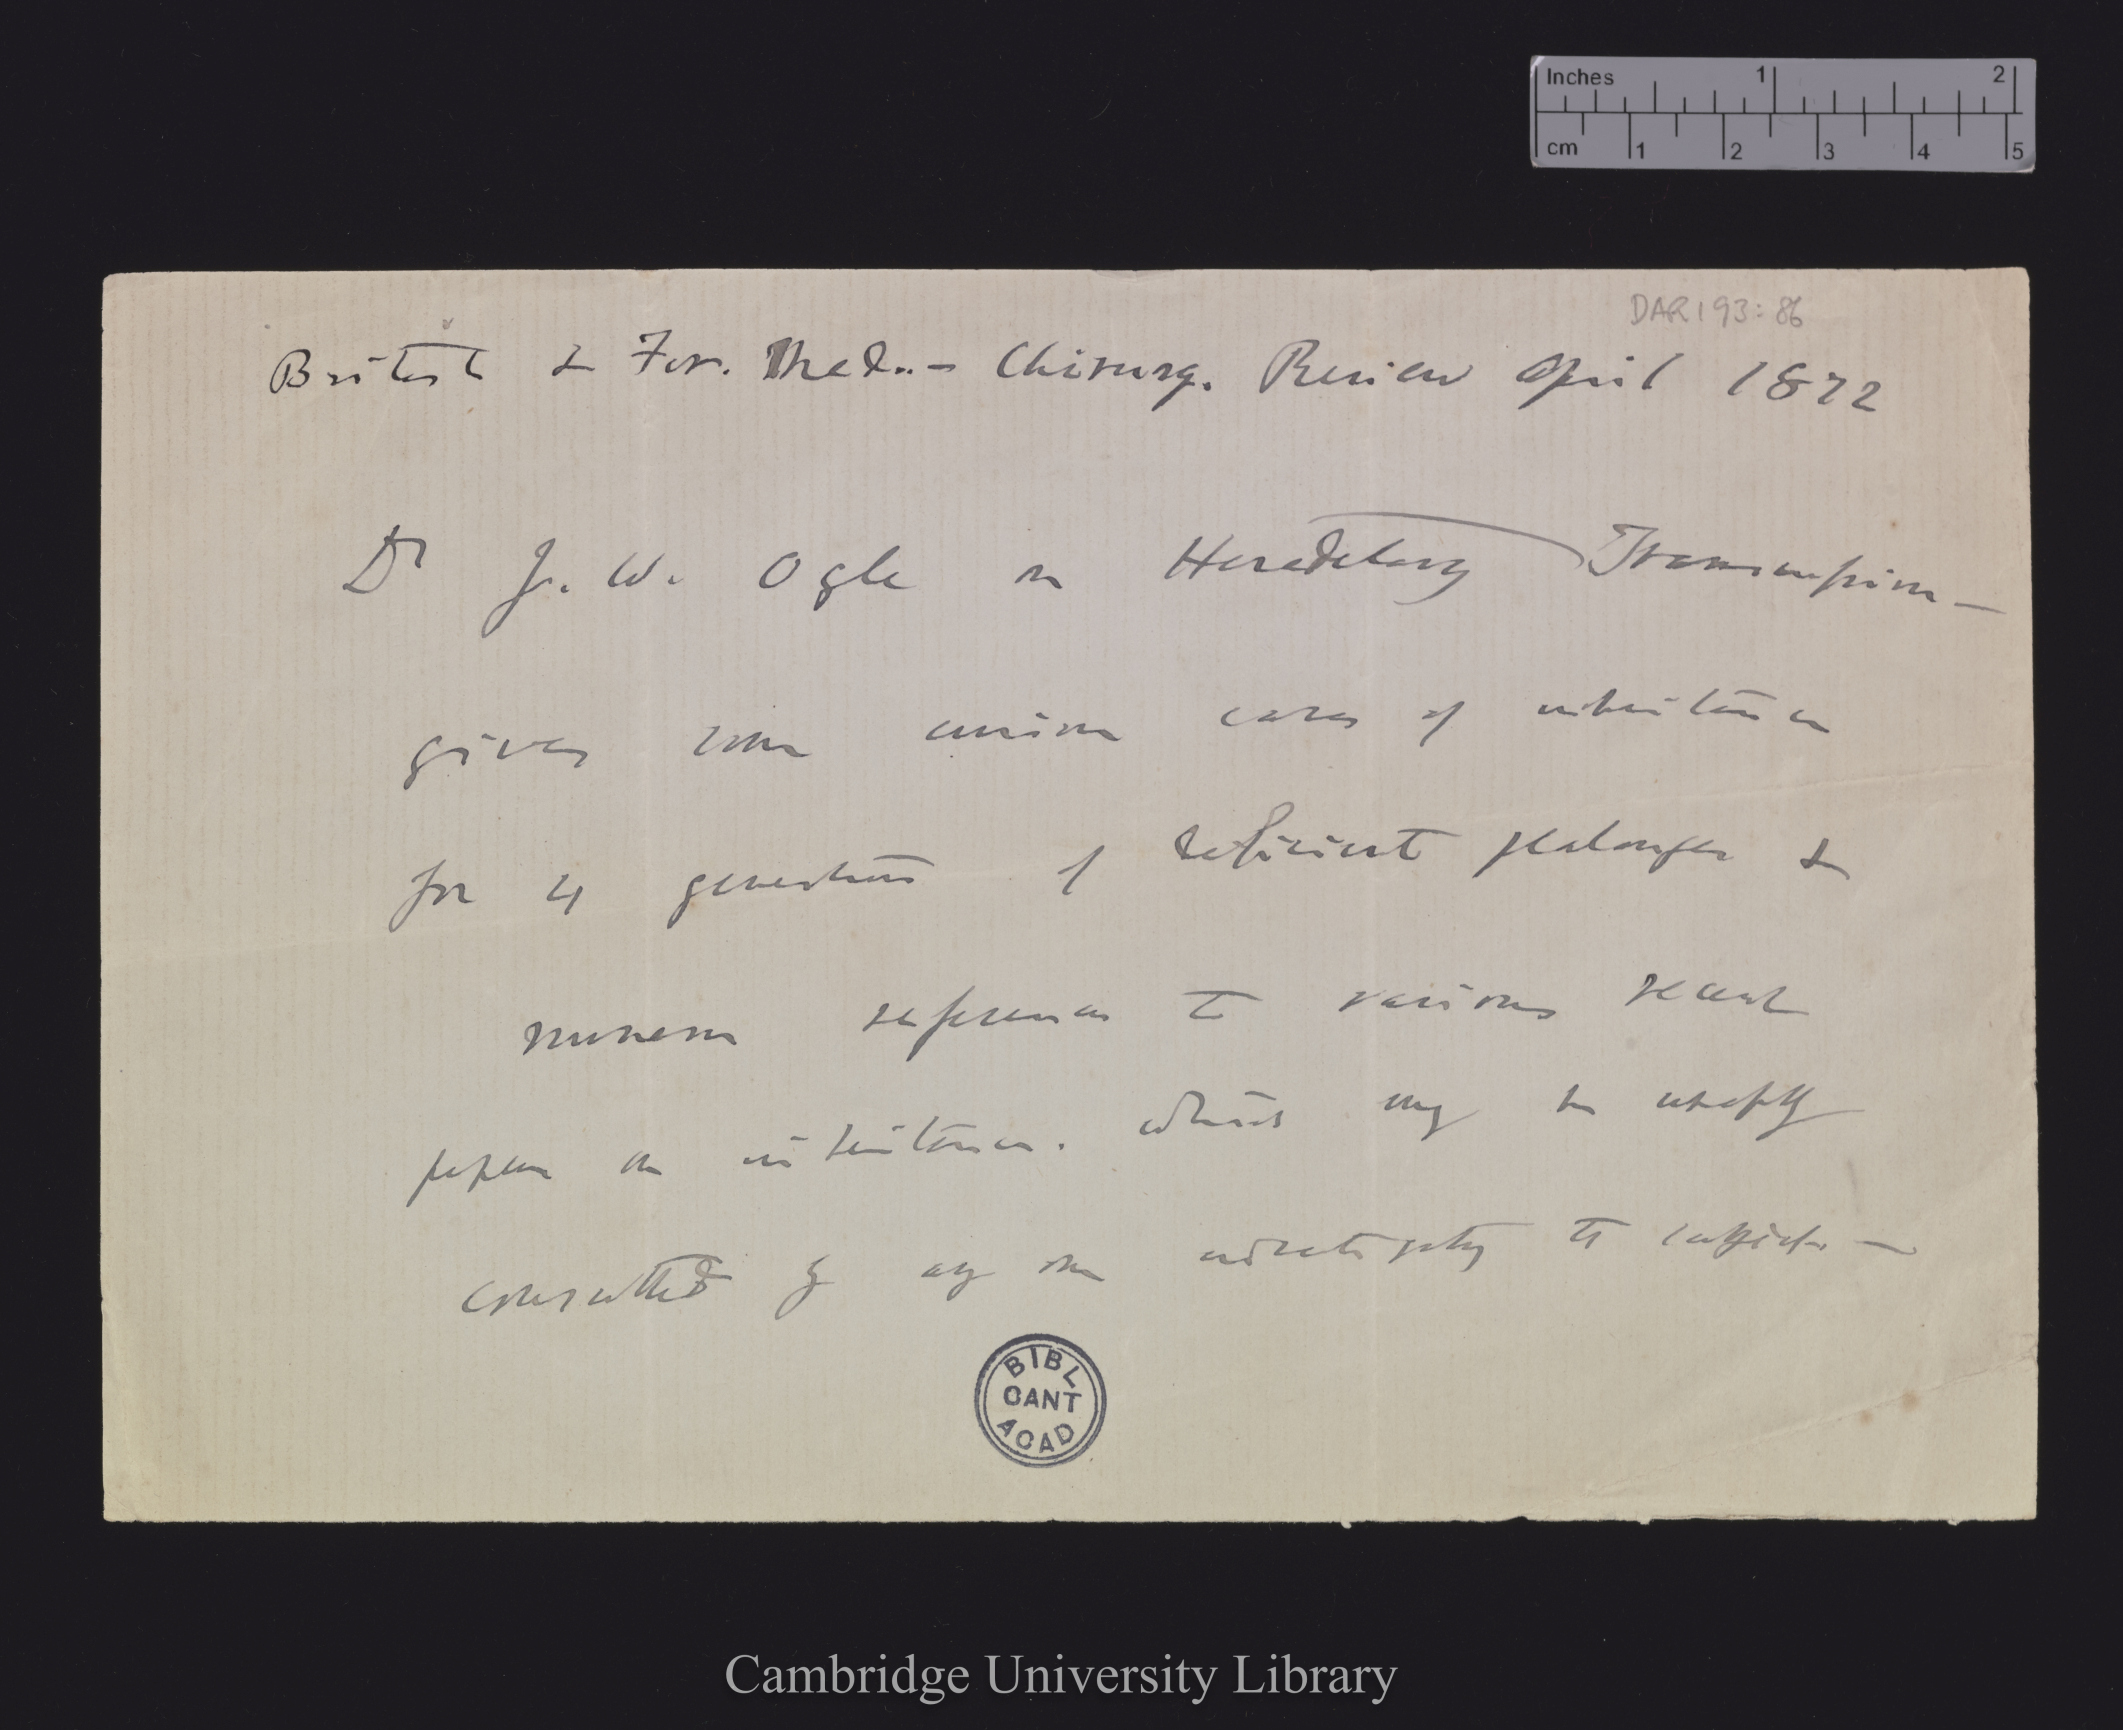 Inches 1 2
cm 1 2 3 4 5
DAR 193: 86
British & For. Med.- Chirurg. Review April 1872
Dr J. W. Ogle on Hereditary Transmission —
gives some curious cases of inheritance
for 4 generations of deficient phalanges &
numerous references to various recent
papers on inheritance. which may be usefully
consulted by any one investigating the subject —
BIBL
CANT
ACAD
Cambridge University Library